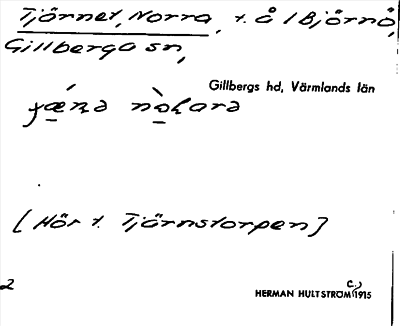 Tjärnet, Norra, t. å i Björnö,
Gillberga sn,
Gillbergs hd, Värmlands län
[Hör t. Tjärnstorpen]
2
HERMAN HULTSTRÖM C.) 1915